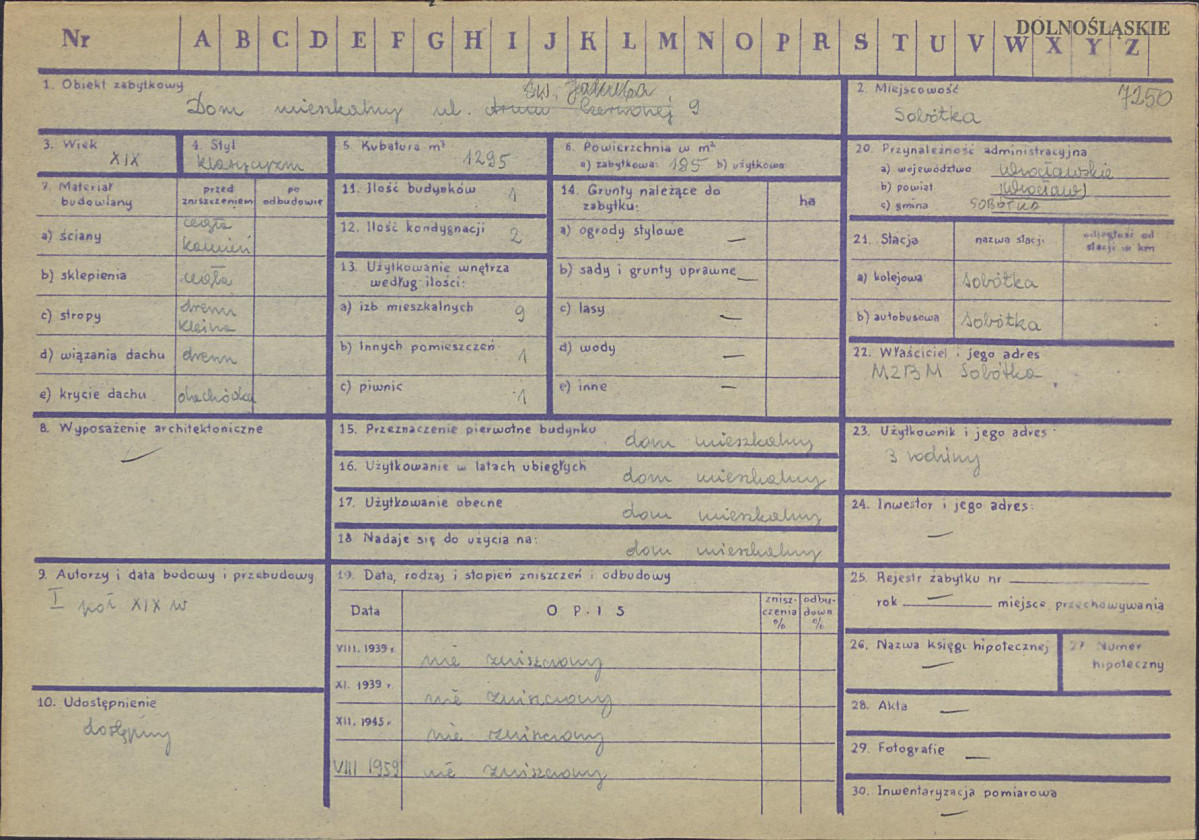 DOLNOŚLĄSKIE
Nr A B C D E F G H I J K L M N O P R S T U V W X Y Z
1. Obiekt zabytkowy
św. Jakuba
Dom mieszkalny ul. Armii Czerwonej 9
2. Miejscowość
7250
Sobótka
3. Wiek
XIX
4. Styl
klasycyzm
5. Kubatura m³
1295
6. Powierzchnia w m²
a) zabytkowa: 185 b) użytkowa
7. Materiał budowlany
przed zniszczeniem
po odbudowie
a) ściany
cegła
kamień
b) sklepienia
cegła
c) stropy
drewn
Kleina
d) wiązania dachu
drewn
e) krycie dachu
dachówka
8. Wyposażenie architektoniczne
—
9. Autorzy i data budowy i przebudowy
I poł XIX w
10. Udostępnienie
dostępny
11. Ilość budynków
1
12. Ilość kondygnacji
2
13. Użytkowanie wnętrza
według ilości:
a) izb mieszkalnych
9
b) innych pomieszczeń
1
c) piwnic
1
14. Grunty należące do
zabytku:
ha
a) ogrody stylowe —
b) sady i grunty uprawne —
c) lasy —
d) wody —
e) inne —
15. Przeznaczenie pierwotne budynku dom mieszkalny
16. Użytkowanie w latach ubiegłych dom mieszkalny
17. Użytkowanie obecne dom mieszkalny
18 Nadaje się do użycia na: dom mieszkalny
19. Data, rodzaj i stopień zniszczeń i odbudowy
Data
OPIS
znisz-
czenia
%
odbu-
dowa
%
VIII. 1939 r nie zniszczony
XI. 1939 r. nie zniszczony
XII. 1945 r. nie zniszczony
VIII 1959 nie zniszczony
20. Przynależność administracyjna
a) województwo wrocławskie
b) powiat Wrocław
c) gmina SOBÓTKA
21. Stacja
nazwa stacji
odległość od
stacji w km
a) kolejowa Sobótka
b) autobusowa Sobótka
22. Właściciel i jego adres
MZBM Sobótka
23. Użytkownik i jego adres
3 rodziny
24. Inwestor i jego adres:
—
25. Rejestr zabytku nr
rok — miejsce przechowywania
26. Nazwa księgi hipotecznej
—
27 Numer
hipoteczny
28. Akta —
29. Fotografie —
30. Inwentaryzacja pomiarowa
—